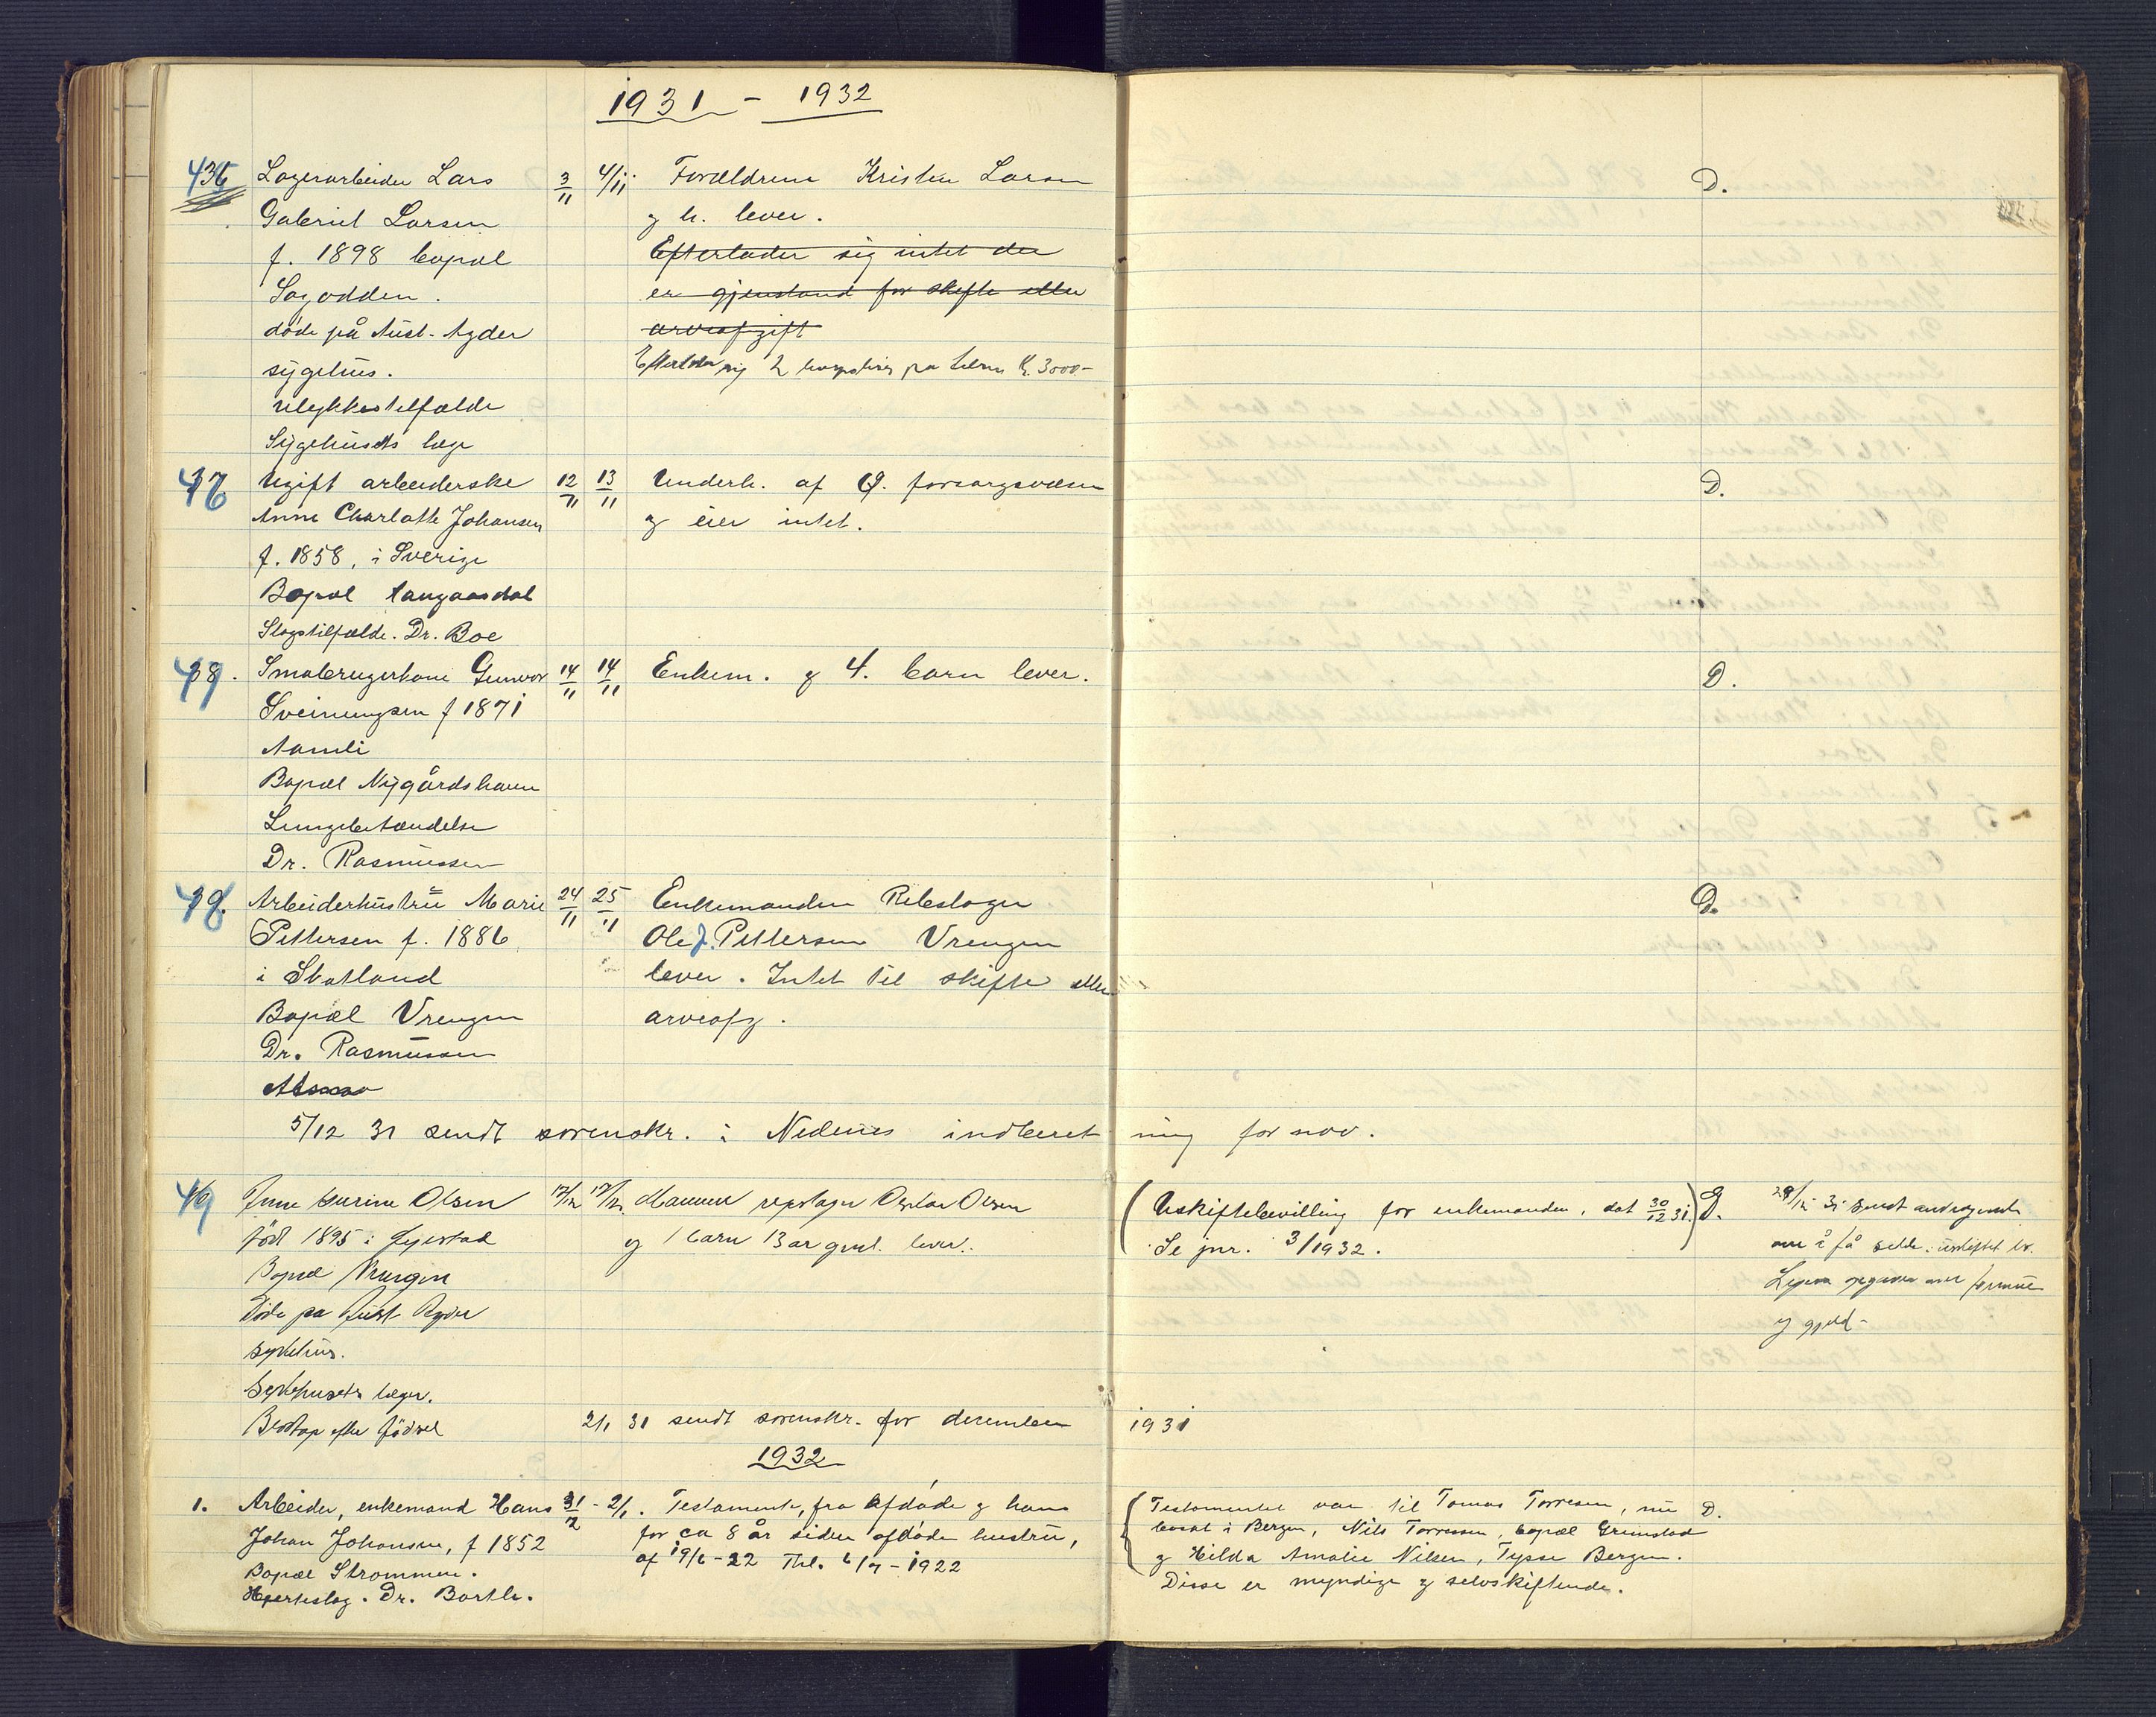 1931 - 1932
436 Lagerarbeider Lars 3/11 4/11 Forældrene Kristen Larsen D.
Gabriel Larsen og h. lever.
f. 1898 bopæl Efterlader sig intet der
Sagodden. er gjenstand for skifte eller
døde på Aust-Agder arveafgift
sygehus. Efterlater sig 2 på tils. kr. 3000-
ulykkestilfælde
Sygehusets læge
37 Ugift arbeiderske 12/11 13/11 Underh. af Ø. forsorgsvæsen D.
Anne Charlotte Johansen og eier intet.
f. 1858, i Sverige
Bopæl Langaasdal
Slagtilfælde. Dr. Boe
38. Smabrugerkone Gunvor 14/11 14/11 Enkem. og 4. barn lever. D.
Sveinungsen f 1871
Aamli
Bopæl Nygårdshaven
Lungebetændelse
Dr. Rasmussen
39. Arbeiderhustru Marie 24/11 25/11 Enkemanden Rebslager D.
Pettersen f. 1886 Ole J. Pettersen Vrengen
i Skotland lever. Intet til skifte eller
Bopæl Vrengen arveafg.
Dr. Rasmussen
5/12 31 sendt sorenskr. i Nedenes indberetning for nov.
40 Jenny Gurine Olsen 17/12 17/12 Mannen repslager Olsen (Uskiftebevilling for enkemanden, dat 30/12 31.) D. 29/12 31 sendt andragende
født 1895 i Øyestad og 1 barn 13 år gml. lever. Se jnr. 3/1932. om å få sidde i uskiftet bo.
Bopæl Vrengen opgaver over formue
Døde på Aust Agder og gjeld-
sykehus.
Sykehusets læger.
Blodtap efter fødsel 2/1 31 sendt sorenskr. for desember 1931
1932
1. Arbeider, enkemand Hans 31/12 - 2/1. Testamente, fra afdøde og hans Testamentet var til Tomas Torresen, nu D.
Johan Johansen, f 1852 for ca 8 år siden afdøde hustru, bosat i Bergen, Nils Torresen, bopæl Grimstad
Bopæl Strømmen. af 19/6-22 Thl. 6/7-1922 og Hilda Amalie Nilsen, Tysse Bergen.
Hjerteslag. Dr. Barth. Disse er myndige og selvskiftende.